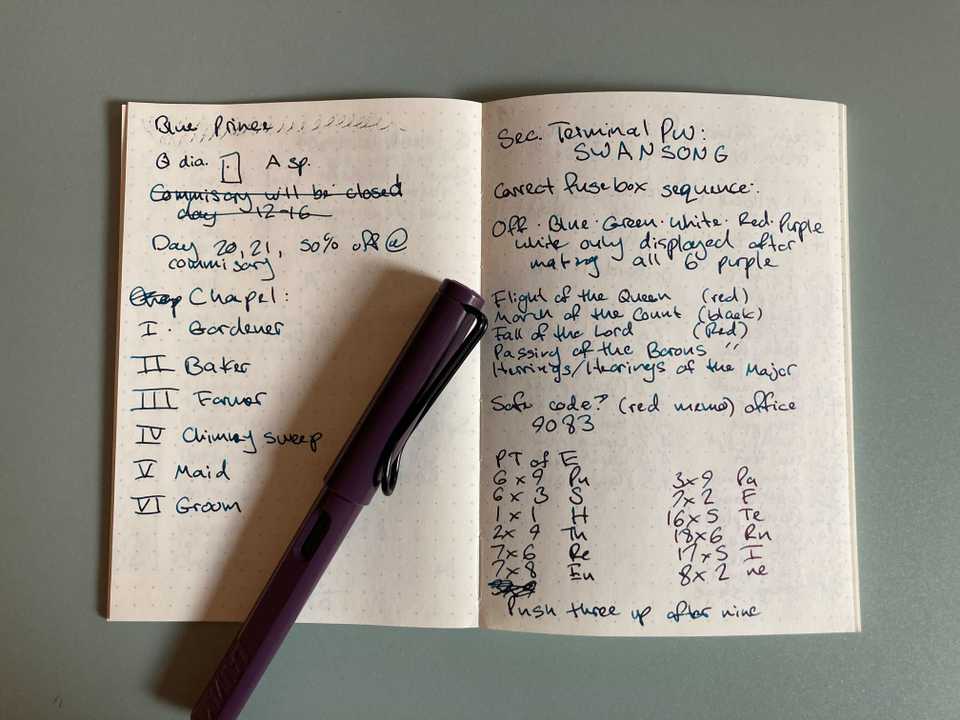 Blue Prince
Q dia. A sp.
Commisary will be closed
day 12-16
Day 20, 21, 50% off @
commisary
Chapel:
I. Gardener
II Baker
III Farmer
IV Chimney sweep
V Maid
VI Groom
Sec. Terminal PW:
SWANSONG
Correct fusebox sequence:
Off · Blue · Green · White · Red · Purple
White only displayed after
making all 6 purple
Flight of the Queen (red)
March of the Count (black)
Fall of the Lord (Red)
Passing of the Barons "
Herrings/Hearings of the Major
Safe code? (red memo) office
9083
PT of E
6 x 9 Pu 3x9 Pa
6 x 3 S 7x2 F
1 x 1 H 16x5 Te
2x 9 Th 18x6 Rn
7x6 Re 17x5 I
7x8 Eu 8x2 ne
Push three up after nine